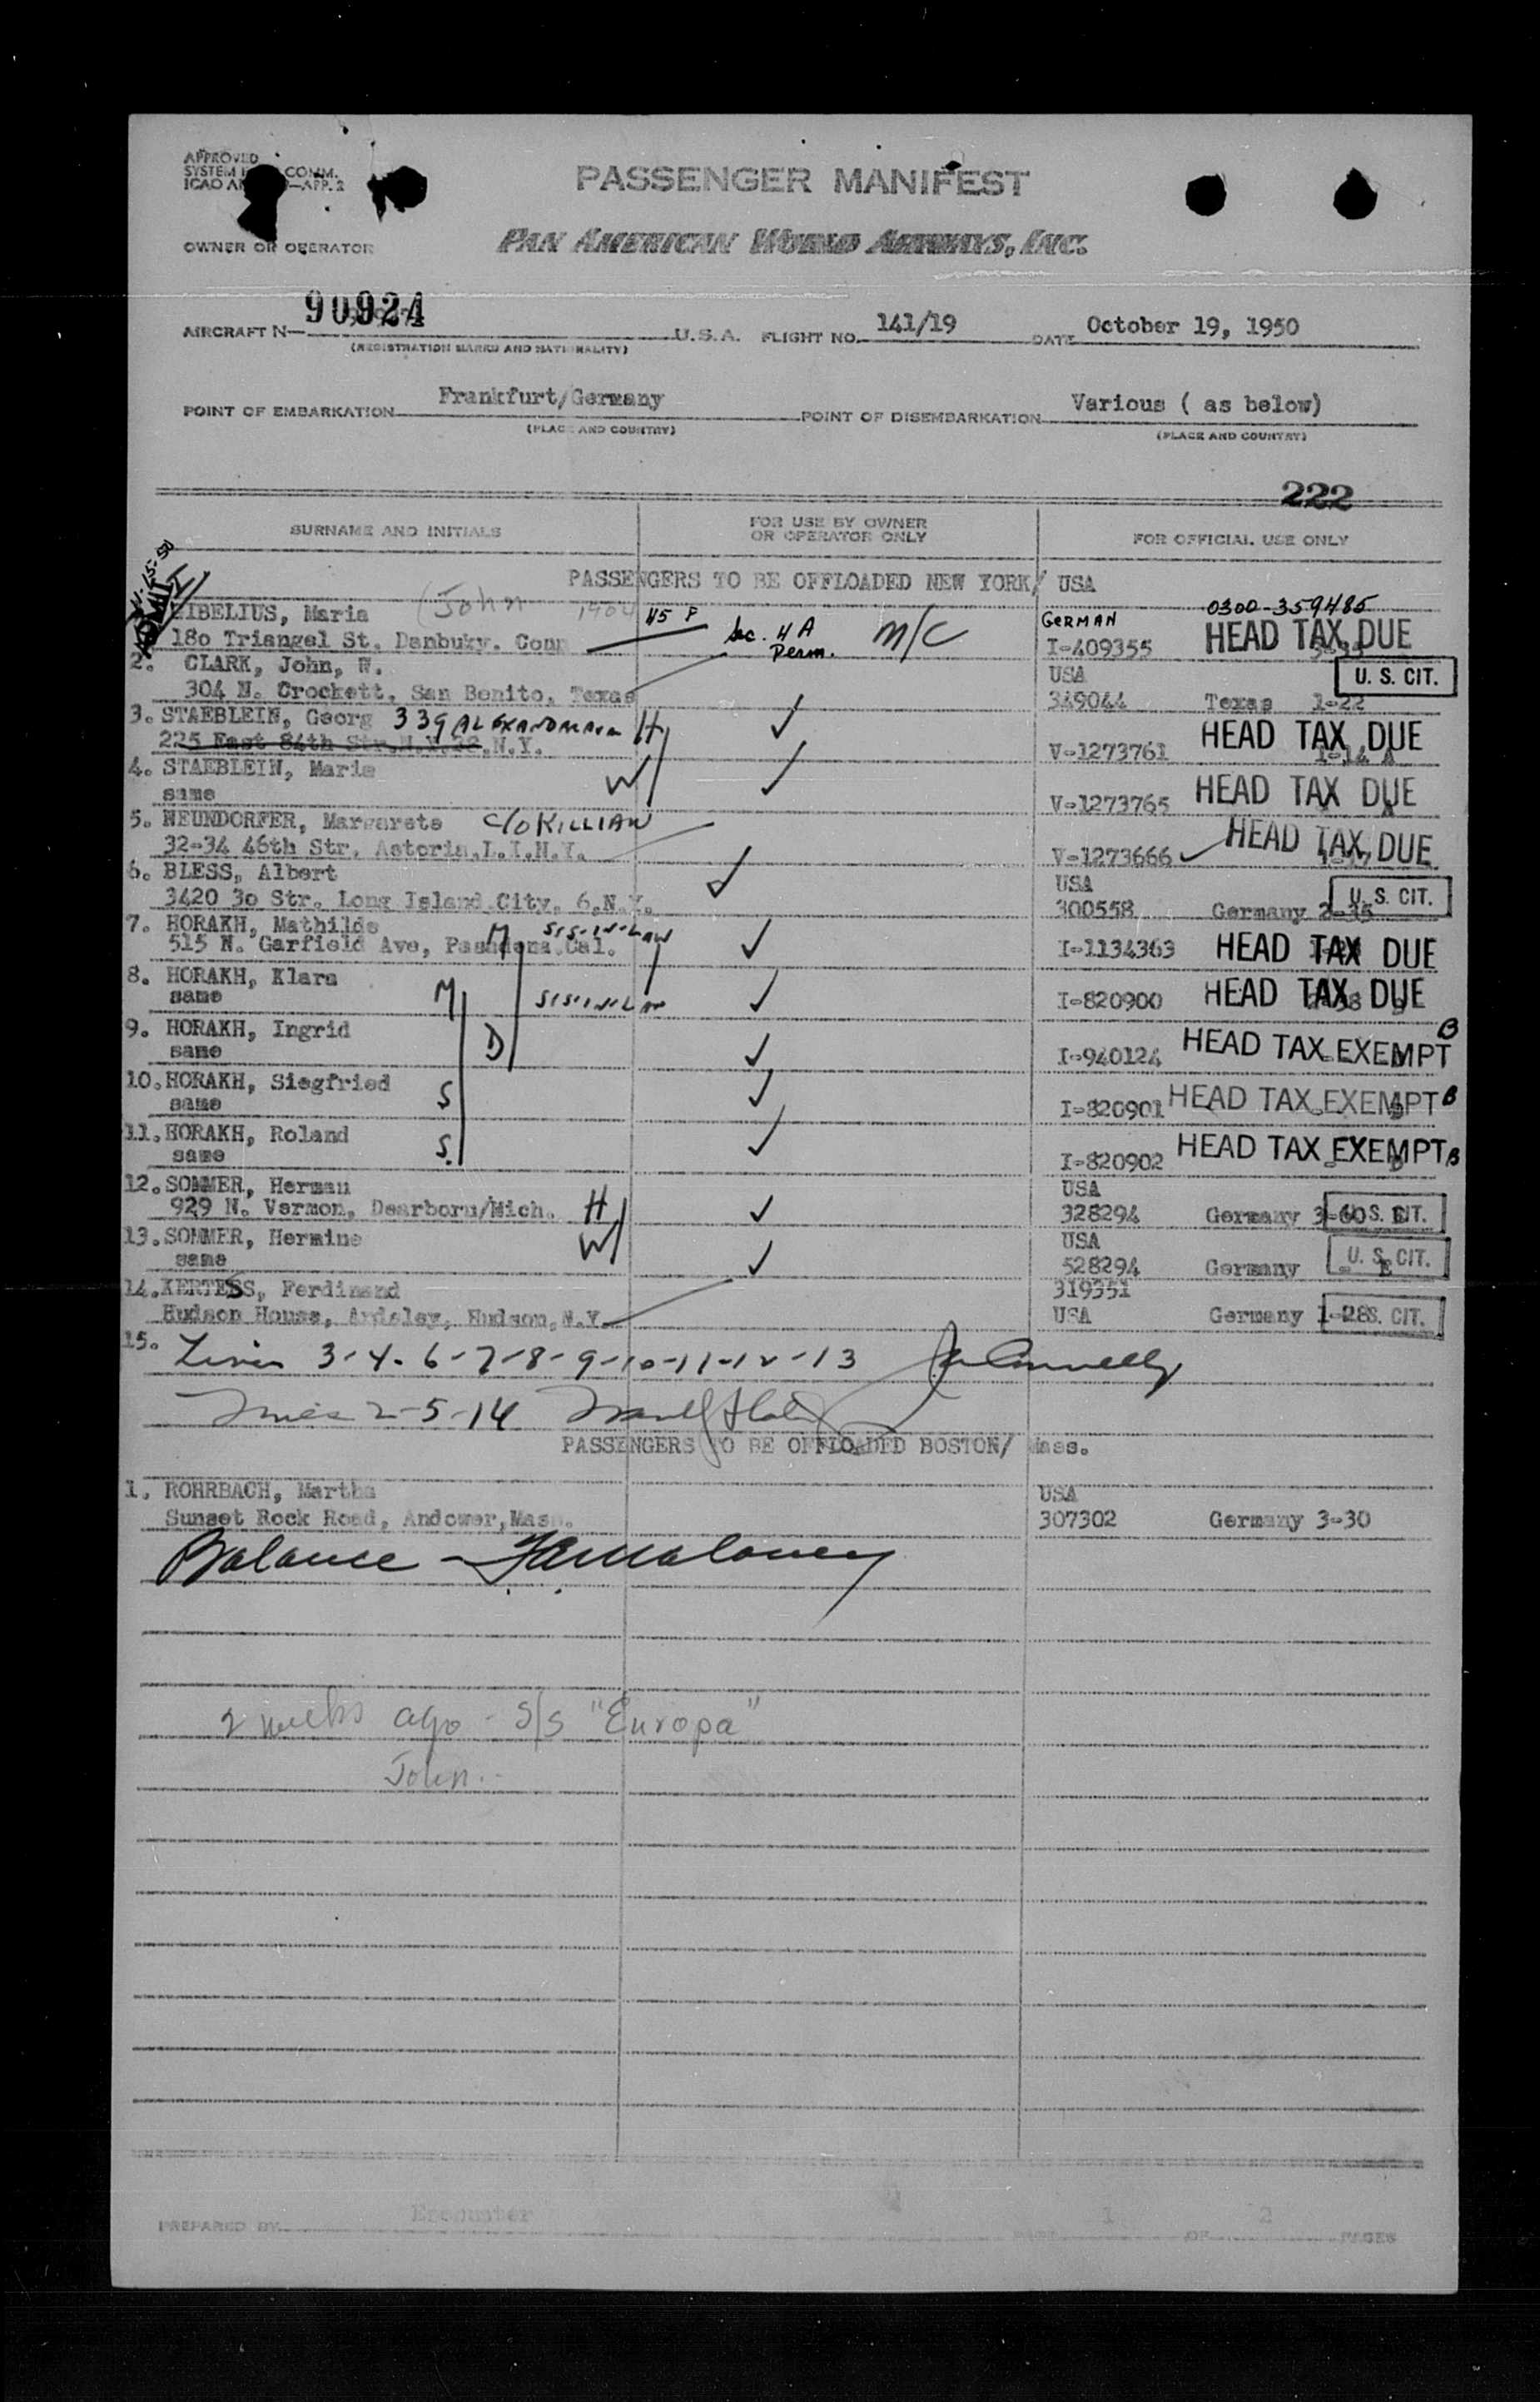 APPROVED
SYSTEM COMM.
ICAO APP. 2
PASSENGER MANIFEST
OWNER OR OPERATOR PAN AMERICAN WORLD AIRWAYS, INC.
AIRCRAFT N- 90924 U.S.A. FLIGHT NO. 141/19 DATE October 19, 1950
(REGISTRATION MARKS AND NATIONALITY)
POINT OF EMBARKATION Frankfurt/Germany POINT OF DISEMBARKATION Various ( as below)
(PLACE AND COUNTRY) (PLACE AND COUNTRY)
222
SURNAME AND INITIALS FOR USE BY OWNER OR OPERATOR ONLY FOR OFFICIAL USE ONLY
PASSENGERS TO BE OFFLOADED NEW YORK/ USA
ADMIT
EIBELIUS, Maria (John 1904 45 F GERMAN 0300-359485
180 Triangel St, Danbuky. Conn Sec. 4 A Perm. M/C I-409355 HEAD TAX DUE
2. CLARK, John, W. USA U. S. CIT.
304 N. Crockett, San Benito, Texas 349044 Texas 1-22
3. STAEBLEIN, Georg 339 H HEAD TAX DUE
225 East 84th Str. N.Y. V-1273761 1-14 A
4. STAEBLEIN, Marie W
same V-1273765 HEAD TAX DUE
5. NEUNDORFER, Margarete C/O KILLIAN
32-34 46th Str, Astoria,L.I.N.Y. V-1273666 HEAD TAX DUE
6. BLESS, Albert USA
3420 30 Str. Long Island City, 6,N.Y. 300558 Germany 2-35 U. S. CIT.
7. HORAKH, Mathilde M SIS-IN-LAW
515 N. Garfield Ave, Pasadena.Cal. I-1134363 HEAD TAX DUE
8. HORAKH, Klara M SIS-IN-LAW
same I-820900 HEAD TAX DUE
9. HORAKH, Ingrid D B
same I-940124 HEAD TAX EXEMPT
10. HORAKH, Siegfried S
same I-820901 HEAD TAX EXEMPT B
11. HORAKH, Roland S.
same I-820902 HEAD TAX EXEMPT B
12. SOMMER, Herman H USA
929 N. Vermon, Dearborn/Mich. 328294 Germany U. S. CIT.
13. SOMMER, Hermine W USA
same 528294 Germany E U. S. CIT.
14. KERTESS, Ferdinand 319351
Hudson House, Ardsley, Hudson,N.Y. USA Germany 1-28 S. CIT.
15. 3-4-6-7-8-9-10-11-12-13
2-5-14
PASSENGERS TO BE OFFLOADED BOSTON/ Mass.
1. ROHRBACH, Martha USA
Sunset Rock Road, Andower,Mass. 307302 Germany 3-30
Balance
2 weeks ago - S/S "Europa"
John.
PREPARED BY PAGE 1 OF 2 PAGES